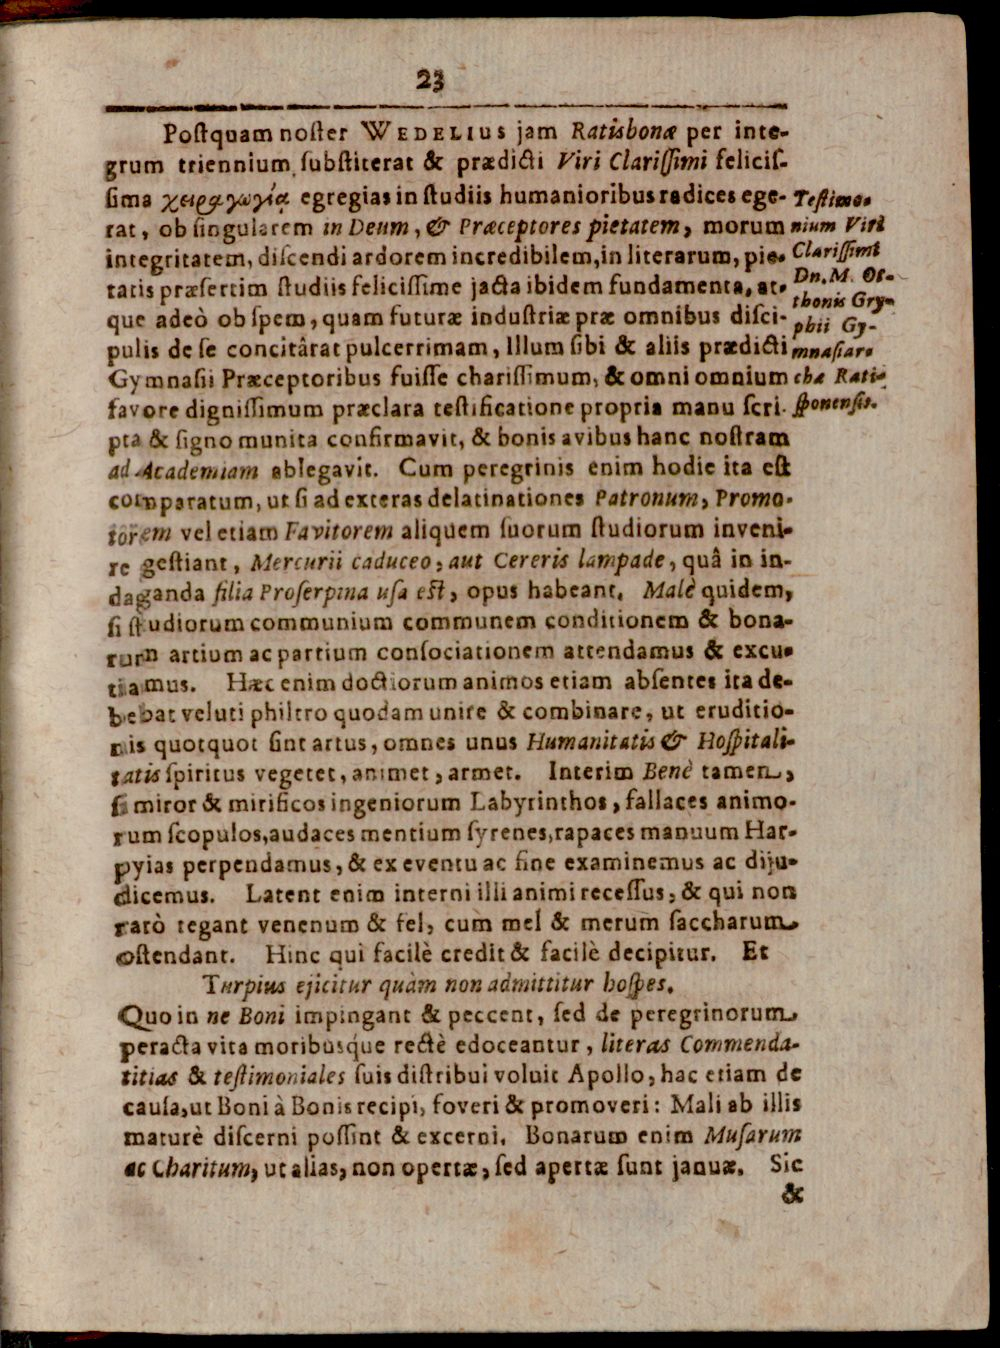 23
Poſtquam noſter WEDELIUS jam Ratisbonæ per inte-
grum triennium ſubſtiterat & prædicti Viri Clariſſimi feliciſ-
ſima χειραγωγίᾳ egregias in ſtudiis humanioribus radices ege-
rat, ob ſingularem in Deum, & Præceptores pietatem, morum
integritatem, diſcendi ardorem incredibilem, in literarum, pie-
tatis præſertim ſtudiis feliciſſime jacta ibidem fundamenta, at-
que adeò ob ſpem, quam futuræ induſtriæ præ omnibus diſci-
pulis de ſe concitârat pulcerrimam, Illum ſibi & aliis prædicti
Gymnaſii Præceptoribus fuiſſe chariſſimum, & omni omnium
favore digniſſimum præclara teſtificatione propria manu ſcri-
pta & ſigno munita confirmavit, & bonis avibus hanc noſtram
ad Academiam ablegavit. Cum peregrinis enim hodie ita eſt
comparatum, ut ſi ad exteras delatinationes Patronum, Promo-
torem vel etiam Favitorem aliquem ſuorum ſtudiorum inveni-
re geſtiant, Mercurii caduceo, aut Cereris lampade, quâ in in-
daganda filia Proſerpina uſa eſt, opus habeant. Malè quidem,
ſi ſtudiorum communium communem conditionem & bona-
rum artium ac partium conſociationem attendamus & excu-
tiamus. Hæc enim doctiorum animos etiam abſentes ita de-
bebat veluti philtro quodam unire & combinare, ut eruditio-
nis quotquot ſint artus, omnes unus Humanitatis & Hoſpitali-
tatis ſpiritus vegetet, animet, armet. Interim Benè tamen,
ſi miror & mirificos ingeniorum Labyrinthos, fallaces animo-
rum ſcopulos, audaces mentium ſyrenes, rapaces manuum Har-
pyias perpendamus, & ex eventu ac fine examinemus ac diju-
dicemus. Latent enim interni illi animi receſſus, & qui non
rarò tegant venenum & fel, cum mel & merum ſaccharum
oſtendant. Hinc qui facilè credit & facilè decipitur. Et
Turpius ejicitur quàm non admittitur hoſpes.
Quo in ne Boni impingant & peccent, ſed de peregrinorum
peracta vita moribusq́ue rectè edoceantur, literas Commenda-
titias & teſtimoniales ſuis diſtribui voluit Apollo, hac etiam de
cauſa, ut Boni à Bonis recipi, foveri & promoveri: Mali ab illis
maturè diſcerni poſſint & excerni. Bonarum enim Muſarum
ac Charitum, ut alias, non opertæ, ſed apertæ ſunt januæ. Sic
&
Teſtimo-
nium Viri
Clariſſimi
Dn. M. Ot-
thonis Gry-
phii Gy-
mnaſiar-
chæ Rati-
ſponenſis.